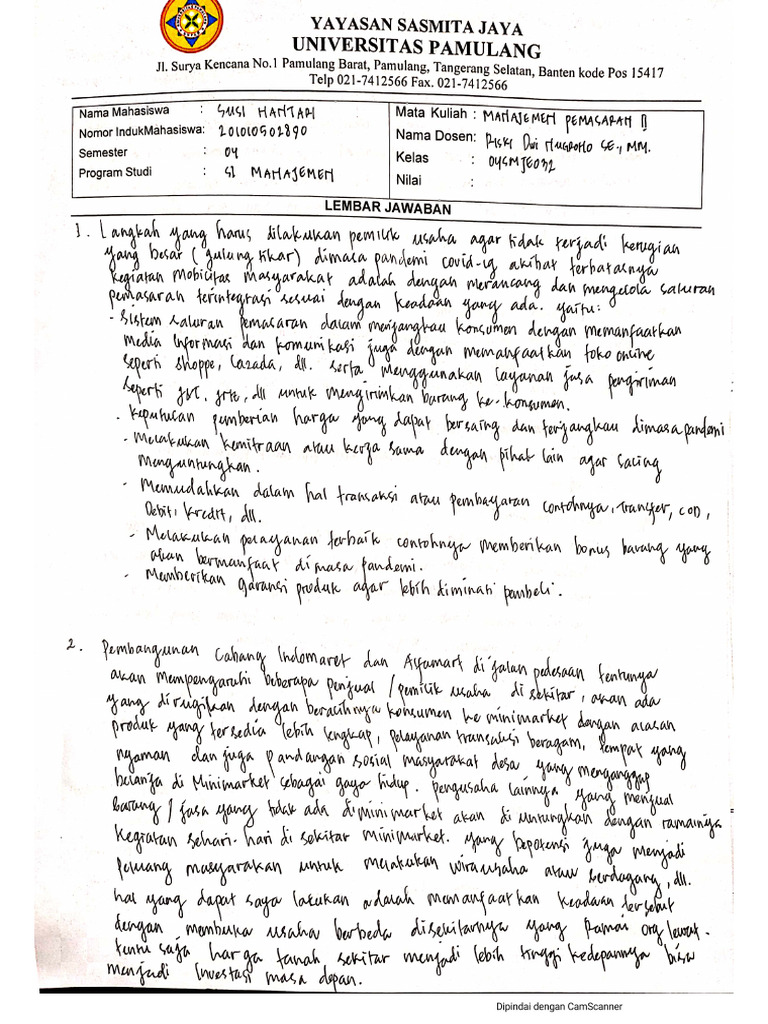 YAYASAN SASMITA JAYA
UNIVERSITAS PAMULANG
Jl. Surya Kencana No.1 Pamulang Barat, Pamulang, Tangerang Selatan, Banten kode Pos 15417
Telp 021-7412566 Fax. 021-7412566
Nama Mahasiswa : SUSI HANTAM
Nomor IndukMahasiswa: 201010502890
Semester : 04
Program Studi : S1 MANAJEMEN
Mata Kuliah : MANAJEMEN PEMASARAN II
Nama Dosen: Riski Dwi Nugroho SE., MM.
Kelas : 04SMJE032
Nilai :
LEMBAR JAWABAN
1. Langkah yang harus dilakukan pemilik usaha agar tidak terjadi kerugian
yang besar (gulung tikar) dimasa pandemi covid-19 akibat terbatasnya
kegiatan mobilitas masyarakat adalah dengan merancang dan mengelola saluran
pemasaran terintegrasi sesuai dengan keadaan yang ada. yaitu:
- Sistem saluran pemasaran dalam menjangkau konsumen dengan memanfaatkan
media informasi dan komunikasi juga dengan memanfaatkan toko online
seperti shoppe, Lazada, dll. serta menggunakan layanan jasa pengiriman
seperti J&T, JNE, dll untuk mengirimkan barang ke-konsumen.
- Keputusan pemberian harga yang dapat bersaing dan terjangkau dimasa pandemi
- Melakukan kemitraan atau kerja sama dengan pihak lain agar saling
menguntungkan.
- Memudahkan dalam hal transaksi atau pembayaran contohnya, Transfer, COD,
Debit, Kredit, dll.
- Melakukan pelayanan terbaik contohnya memberikan bonus barang yang
akan bermanfaat dimasa pandemi.
- Memberikan garansi produk agar lebih diminati pembeli.
2. Pembangunan Cabang Indomaret dan Alfamart di jalan pedesaan tentunya
akan mempengaruhi beberapa penjual / pemilik usaha di sekitar, akan ada
yang dirugikan dengan beralihnya konsumen ke minimarket dengan alasan
produk yang tersedia lebih lengkap, pelayanan transaksi beragam, tempat yang
nyaman dan juga pandangan sosial masyarakat desa yang menganggap
belanja di Minimarket sebagai gaya hidup. pengusaha lainnya yang menjual
barang / jasa yang tidak ada diminimarket akan di untungkan dengan ramainya
kegiatan sehari-hari di sekitar minimarket. yang bepotensi juga menjadi
peluang masyarakan untuk melakukan wirausaha atau berdagang, dll.
hal yang dapat saya lakukan adalah memanfaatkan keadaan tersebut
dengan membuka usaha berbeda disekitarnya yang Ramai org lewat.
tentu saja harga tanah sekitar menjadi lebih tinggi kedepannya bisa
menjadi Investasi masa depan.
Dipindai dengan CamScanner